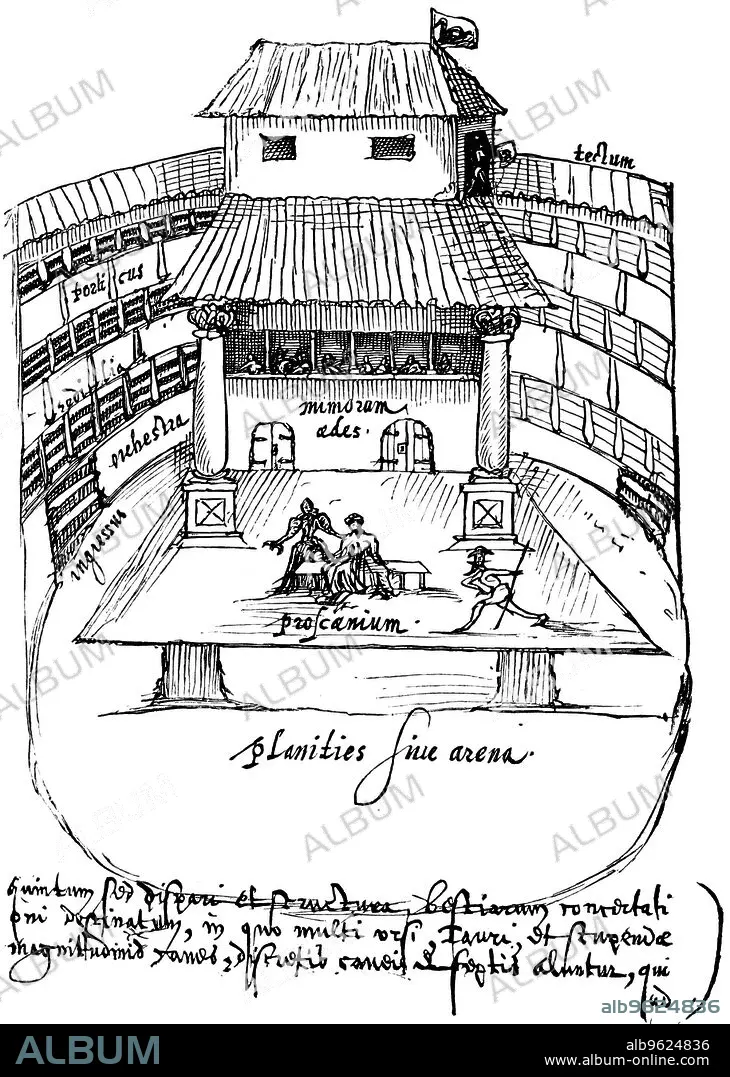 tectum
porticus
sedilia
orchestra
mimorum
ædes.
ingressus
proscænium.
planities sive arena.
quintum sed dispari et structura, bestiarum concertati
oni destinatum, in quo multi ursi, Tauri, et stupendæ
magnitudinis canes, discretis caueis & septis aluntur, qui
ad
ALBUM
alb9624836
ALBUM
alb9624836
www.album-online.com